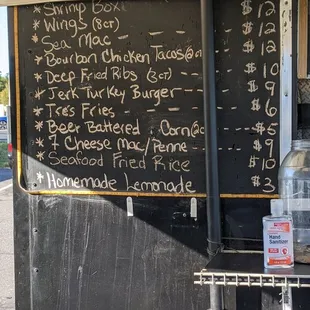 * Shrimp Box! $12
* Wings (8ct) $12
* Sea Mac — $12
* Bourbon Chicken Tacos
* Deep Fried Ribs (3ct) — $10
* Jerk Turkey Burger — $9
* Tre's Fries — $6
* Beer Battered Corn — $5
* 7 Cheese Mac/Penne — $9
* Seafood Fried Rice $10
* Homemade Lemonade $3
Hand
Sanitizer